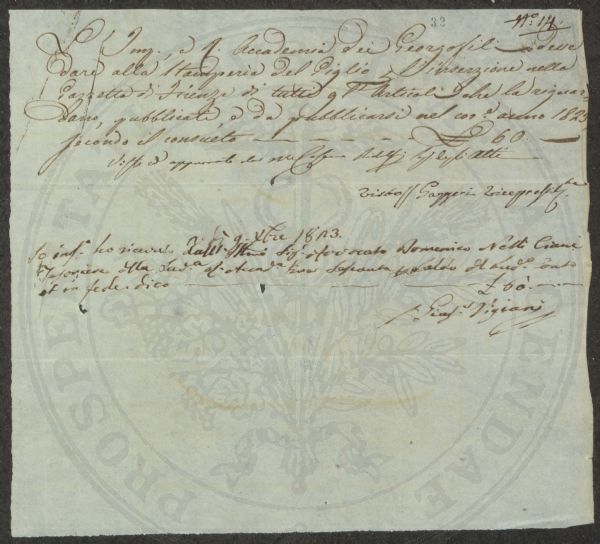 32
N.º 14.
L' Imp. e R. Accademia dei Georgofili deve
dare alla Stamperia del Giglio p. l'inserzione nella
Gazzetta di Firenze di tutti gl' Articoli che la riguar
dano, pubblicati e da pubblicarsi nel cor.e anno 1823
secondo il consueto £ 60.
Visto ed approvato dei Atti
Visto Gazzeri Vicepresid.te
A dì 9. Xbre 1823.
Io inf.o ho ricevuto dall' Ill.mo Sig. Avvocato Domenico Nelli Ciani
Tesoriere della Sud.a Accadem.a lire Sessanta p. saldo del sud.o conto
ed in fede dico £ 60.
Gius. Vigiani
PROSPERITATI AUGENDAE